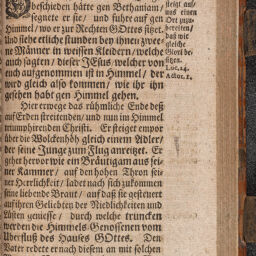 beschieden hätte gen Bethaniam/
segnete er sie/ und fuhre auf gen
Himmel/ wo er zur Rechten GOttes sitzt.
Und siehe etliche stunden bey ihnen zwee-
ne Männer in weissen Kleidern/ welche
auch sagten/ dieser JEsus/ welcher von
euch aufgenommen ist in Himmel/ der
wird gleich also kommen/ wie ihr ihn
gesehen habt gen Himmel gehen.
Hier erwege das rühmliche Ende deß
auf Erden streitenden/ und nun im Himmel
triumphirenden Christi. Er steiget empor
über die Wolckenhöh gleich einem Adler/
der seine Junge zum Flug anreitzet. Er
gehet hervor wie ein Bräutigam aus sei-
ner Kammer/ auf den hohen Thron sei-
ner Herrlichkeit/ ladet nach sich zukommen
seine liebende Braut/ auf daß sie gesteuert
auf ihren Geliebten der Niedlichkeiten und
Lüsten geniesse/ durch welche truncken
werden die Himmels-Genossenen vom
Uberfluß des Hauses GOttes. Den
Vater redete er nach diesem an mit solchen
steigt auf/
uns einen
Ort zuzu-
bereiten/
daß wir
gleiche
Glori be-
sitzen.
Luc. 24.
Actor. 1.